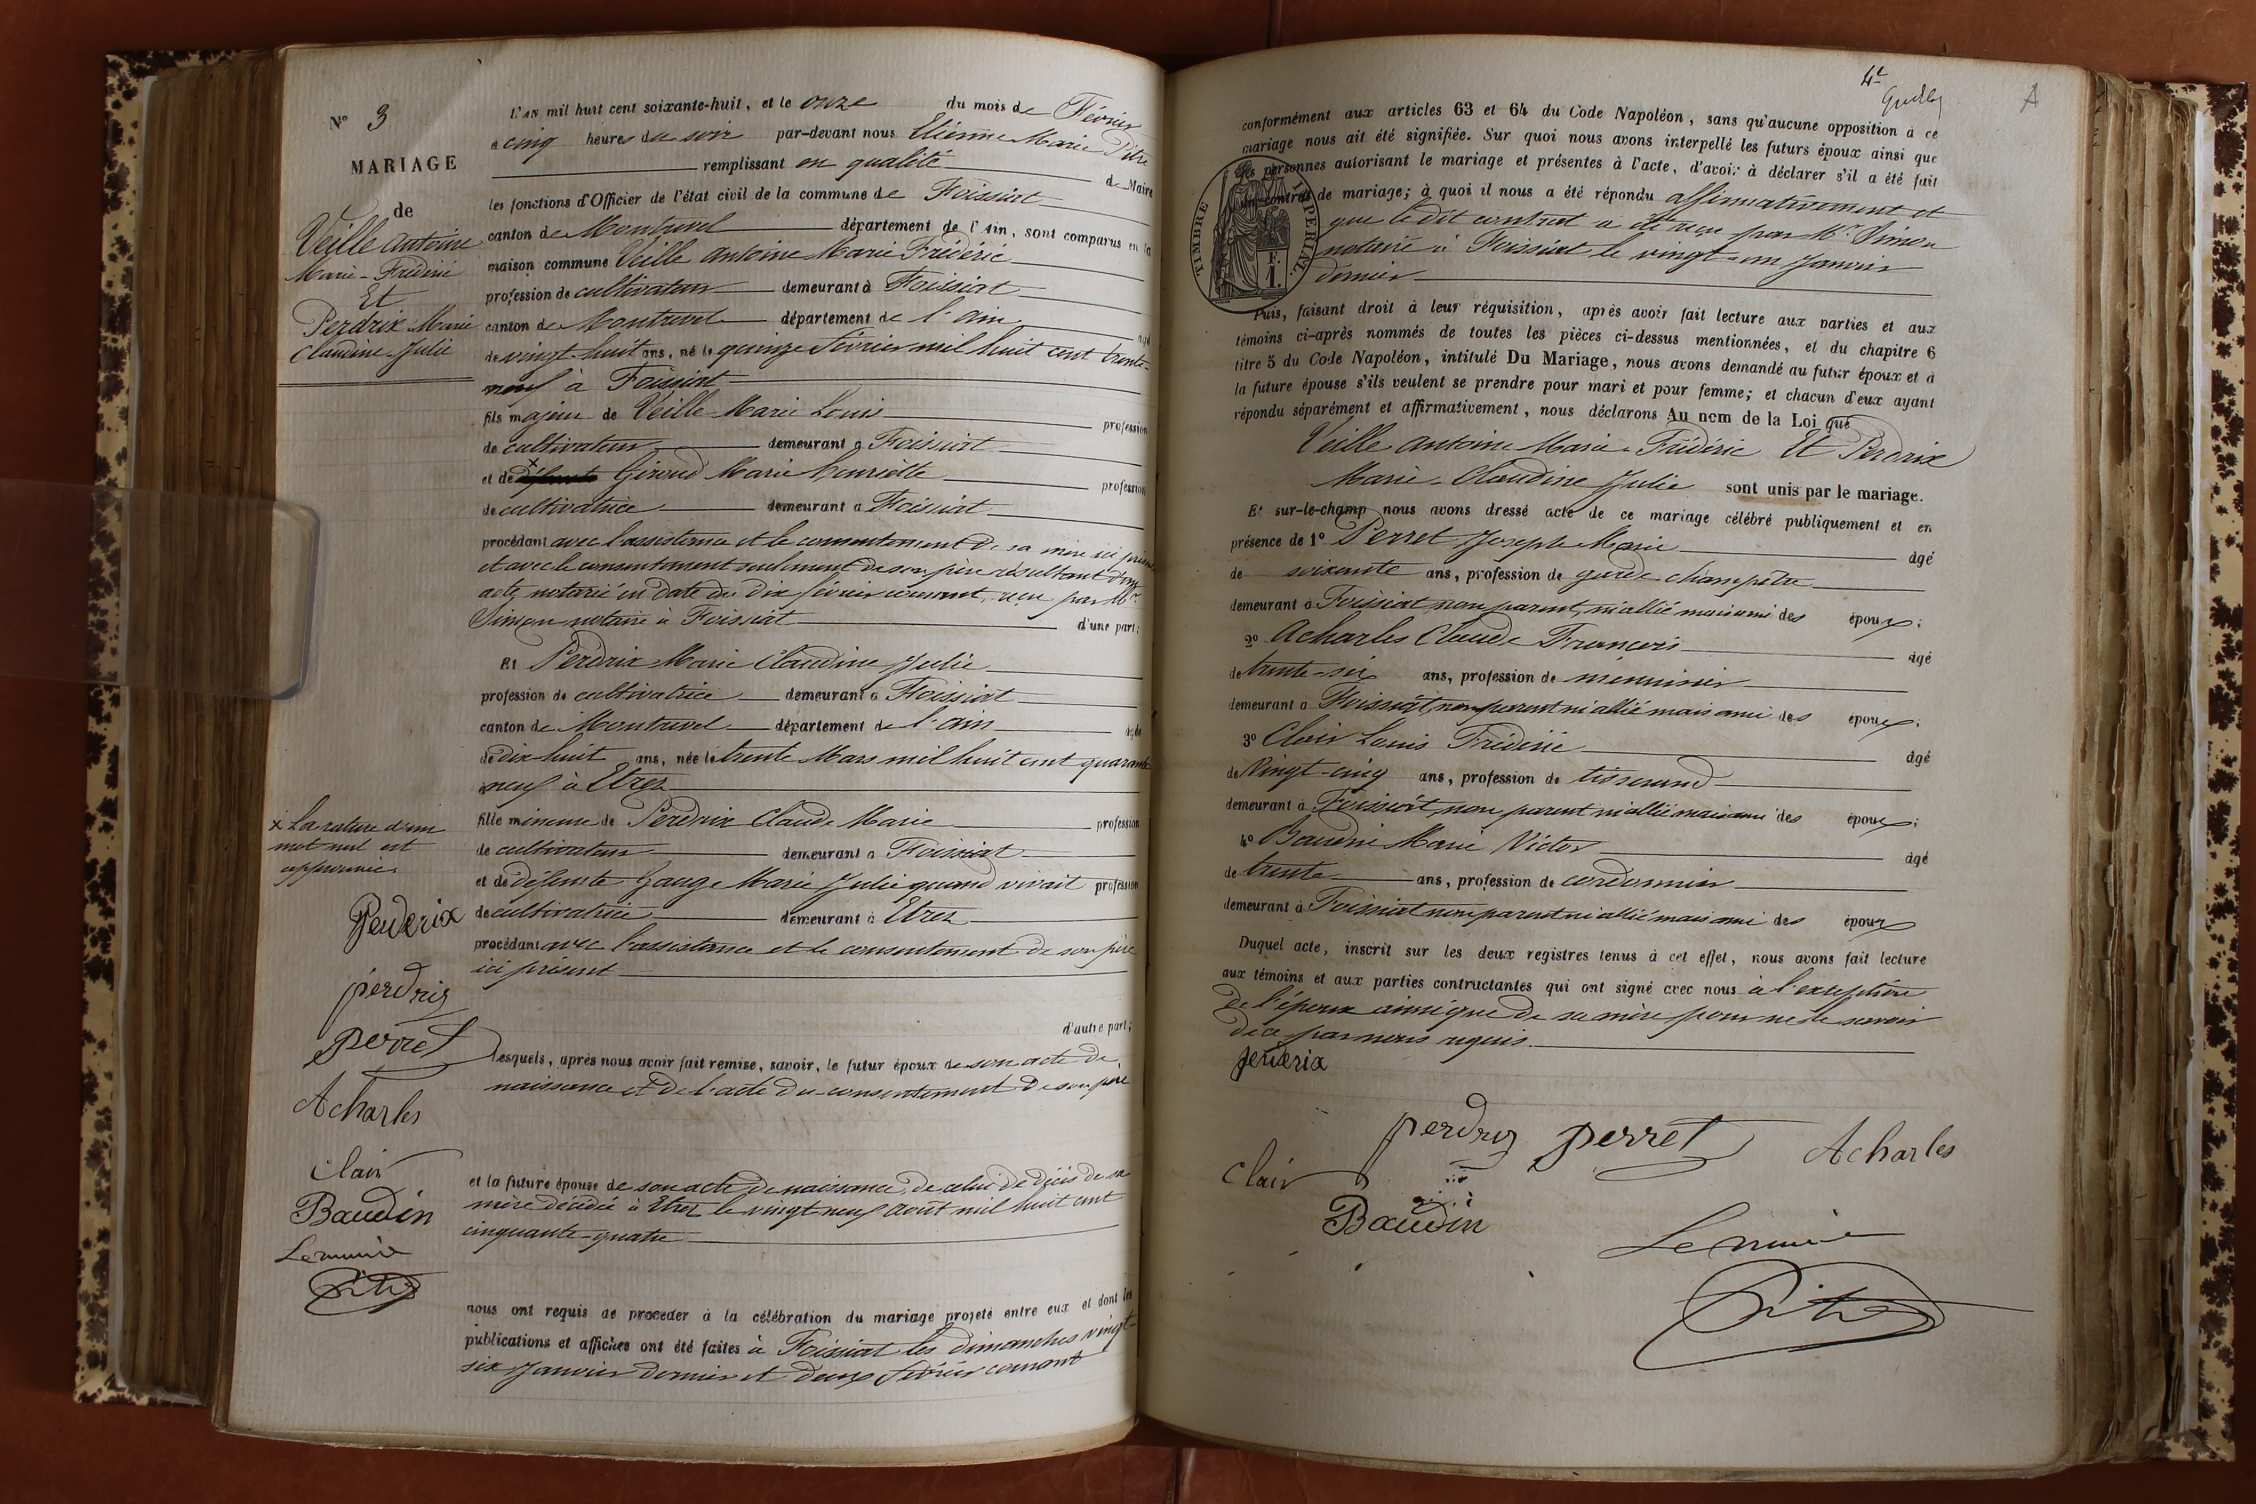 N° 3
MARIAGE
de
Veille Antoine
Marie-Frédéric
Et
Perdrix Marie
Claudine Julie
L'AN mil huit cent soixante-huit, et le onze du mois de Février
à cinq heures du soir par-devant nous Etienne Marie Pitre
remplissant en qualité de Maire
les fonctions d'Officier de l'état civil de la commune de Foissiat
canton de Montrevel département de l'Ain, sont comparus en la
maison commune Veille Antoine Marie Frédéric
profession de cultivateur demeurant à Foissiat
canton de Montrevel département de l'ain agé
de vingt-huit ans, né le quinze Février mil huit cent trente-
neuf à Foissiat
fils majeur de Veille Marie Louis profession
de cultivateur demeurant à Foissiat
et de Giroud Marie Henriette profession
de cultivatrice demeurant à Foissiat
procédant avec l'assistance et le consentement de sa mère ici présente
et avec le consentement seulement de son père résultant d'un
acte notarié en date du dix février courant, reçu par Mr
Simon notaire à Foissiat d'une part;
Et Perdrix Marie Claudine Julie
profession de cultivatrice demeurant à Foissiat
canton de Montrevel département de l'ain agée
de dix huit ans, née le trente Mars mil huit cent quarante
neuf à Etrez
fille mineure de Perdrix Claude Marie profession
de cultivateur demeurant à Foissiat
et de défunte Gauge Marie Julie quand vivait profession
de cultivatrice demeurant à Etrez
procédant avec l'assistance et le consentement de son père
ici présent
d'autre part;
Lesquels, après nous avoir fait remise, savoir, le futur époux de son acte de
naissance et de l'acte du consentement de son père
et la future épouse de son acte de naissance, de celui de décès de sa
mère décédée à Etrez le vingt neuf août mil huit cent
cinquante-quatre
nous ont requis de procéder à la célébration du mariage projeté entre eux et dont les
publications et affiches ont été faites à Foissiat les dimanches vingt-
six Janvier dernier et deux Février courant
x La rature d'un
mot nul est
approuvée
Perderix
perdrix
perret
Acharles
Clair
Baudin
Le maire
Pitre
4e
A
conformément aux articles 63 et 64 du Code Napoléon, sans qu'aucune opposition à ce
mariage nous ait été signifiée. Sur quoi nous avons interpellé les futurs époux ainsi que
les personnes autorisant le mariage et présentes à l'acte, d'avoir à déclarer s'il a été fait
un contrat de mariage; à quoi il nous a été répondu affirmativement et
que le dit contrat a été reçu par Mr Simon
notaire à Foissiat le vingt-un Janvier
dernier
TIMBRE IMPERIAL
F.
1.
Puis, faisant droit à leur réquisition, après avoir fait lecture aux parties et aux
témoins ci-après nommés de toutes les pièces ci-dessus mentionnées, et du chapitre 6
titre 5 du Code Napoléon, intitulé Du Mariage, nous avons demandé au futur époux et à
la future épouse s'ils veulent se prendre pour mari et pour femme; et chacun d'eux ayant
répondu séparément et affirmativement, nous déclarons Au nom de la Loi que
Veille Antoine Marie Frédéric Et Perdrix
Marie-Claudine Julie sont unis par le mariage.
Et sur-le-champ nous avons dressé acte de ce mariage célébré publiquement et en
présence de 1° Perret Joseph Marie âgé
de soixante ans, profession de garde champêtre
demeurant à Foissiat, non parent, ni allié mais ami des époux;
2° Acharles Claude François âgé
de trente-six ans, profession de menuisier
demeurant à Foissiat, non parent ni allié mais ami des époux;
3° Clair Louis Frédéric âgé
de vingt-cinq ans, profession de tisserand
demeurant à Foissiat, non parent ni allié mais ami des époux;
4° Baudin Marie Victor âgé
de trente ans, profession de cordonnier
demeurant à Foissiat non parent ni allié mais ami des époux
Duquel acte, inscrit sur les deux registres tenus à cet effet, nous avons fait lecture
aux témoins et aux parties contractantes qui ont signé avec nous à l'exception
de l'époux ainsi que de sa mère pour ne le savoir
de ce par nous requis.
perderix
perdrix perret Acharles
Clair
Baudin
Le maire
Pitre